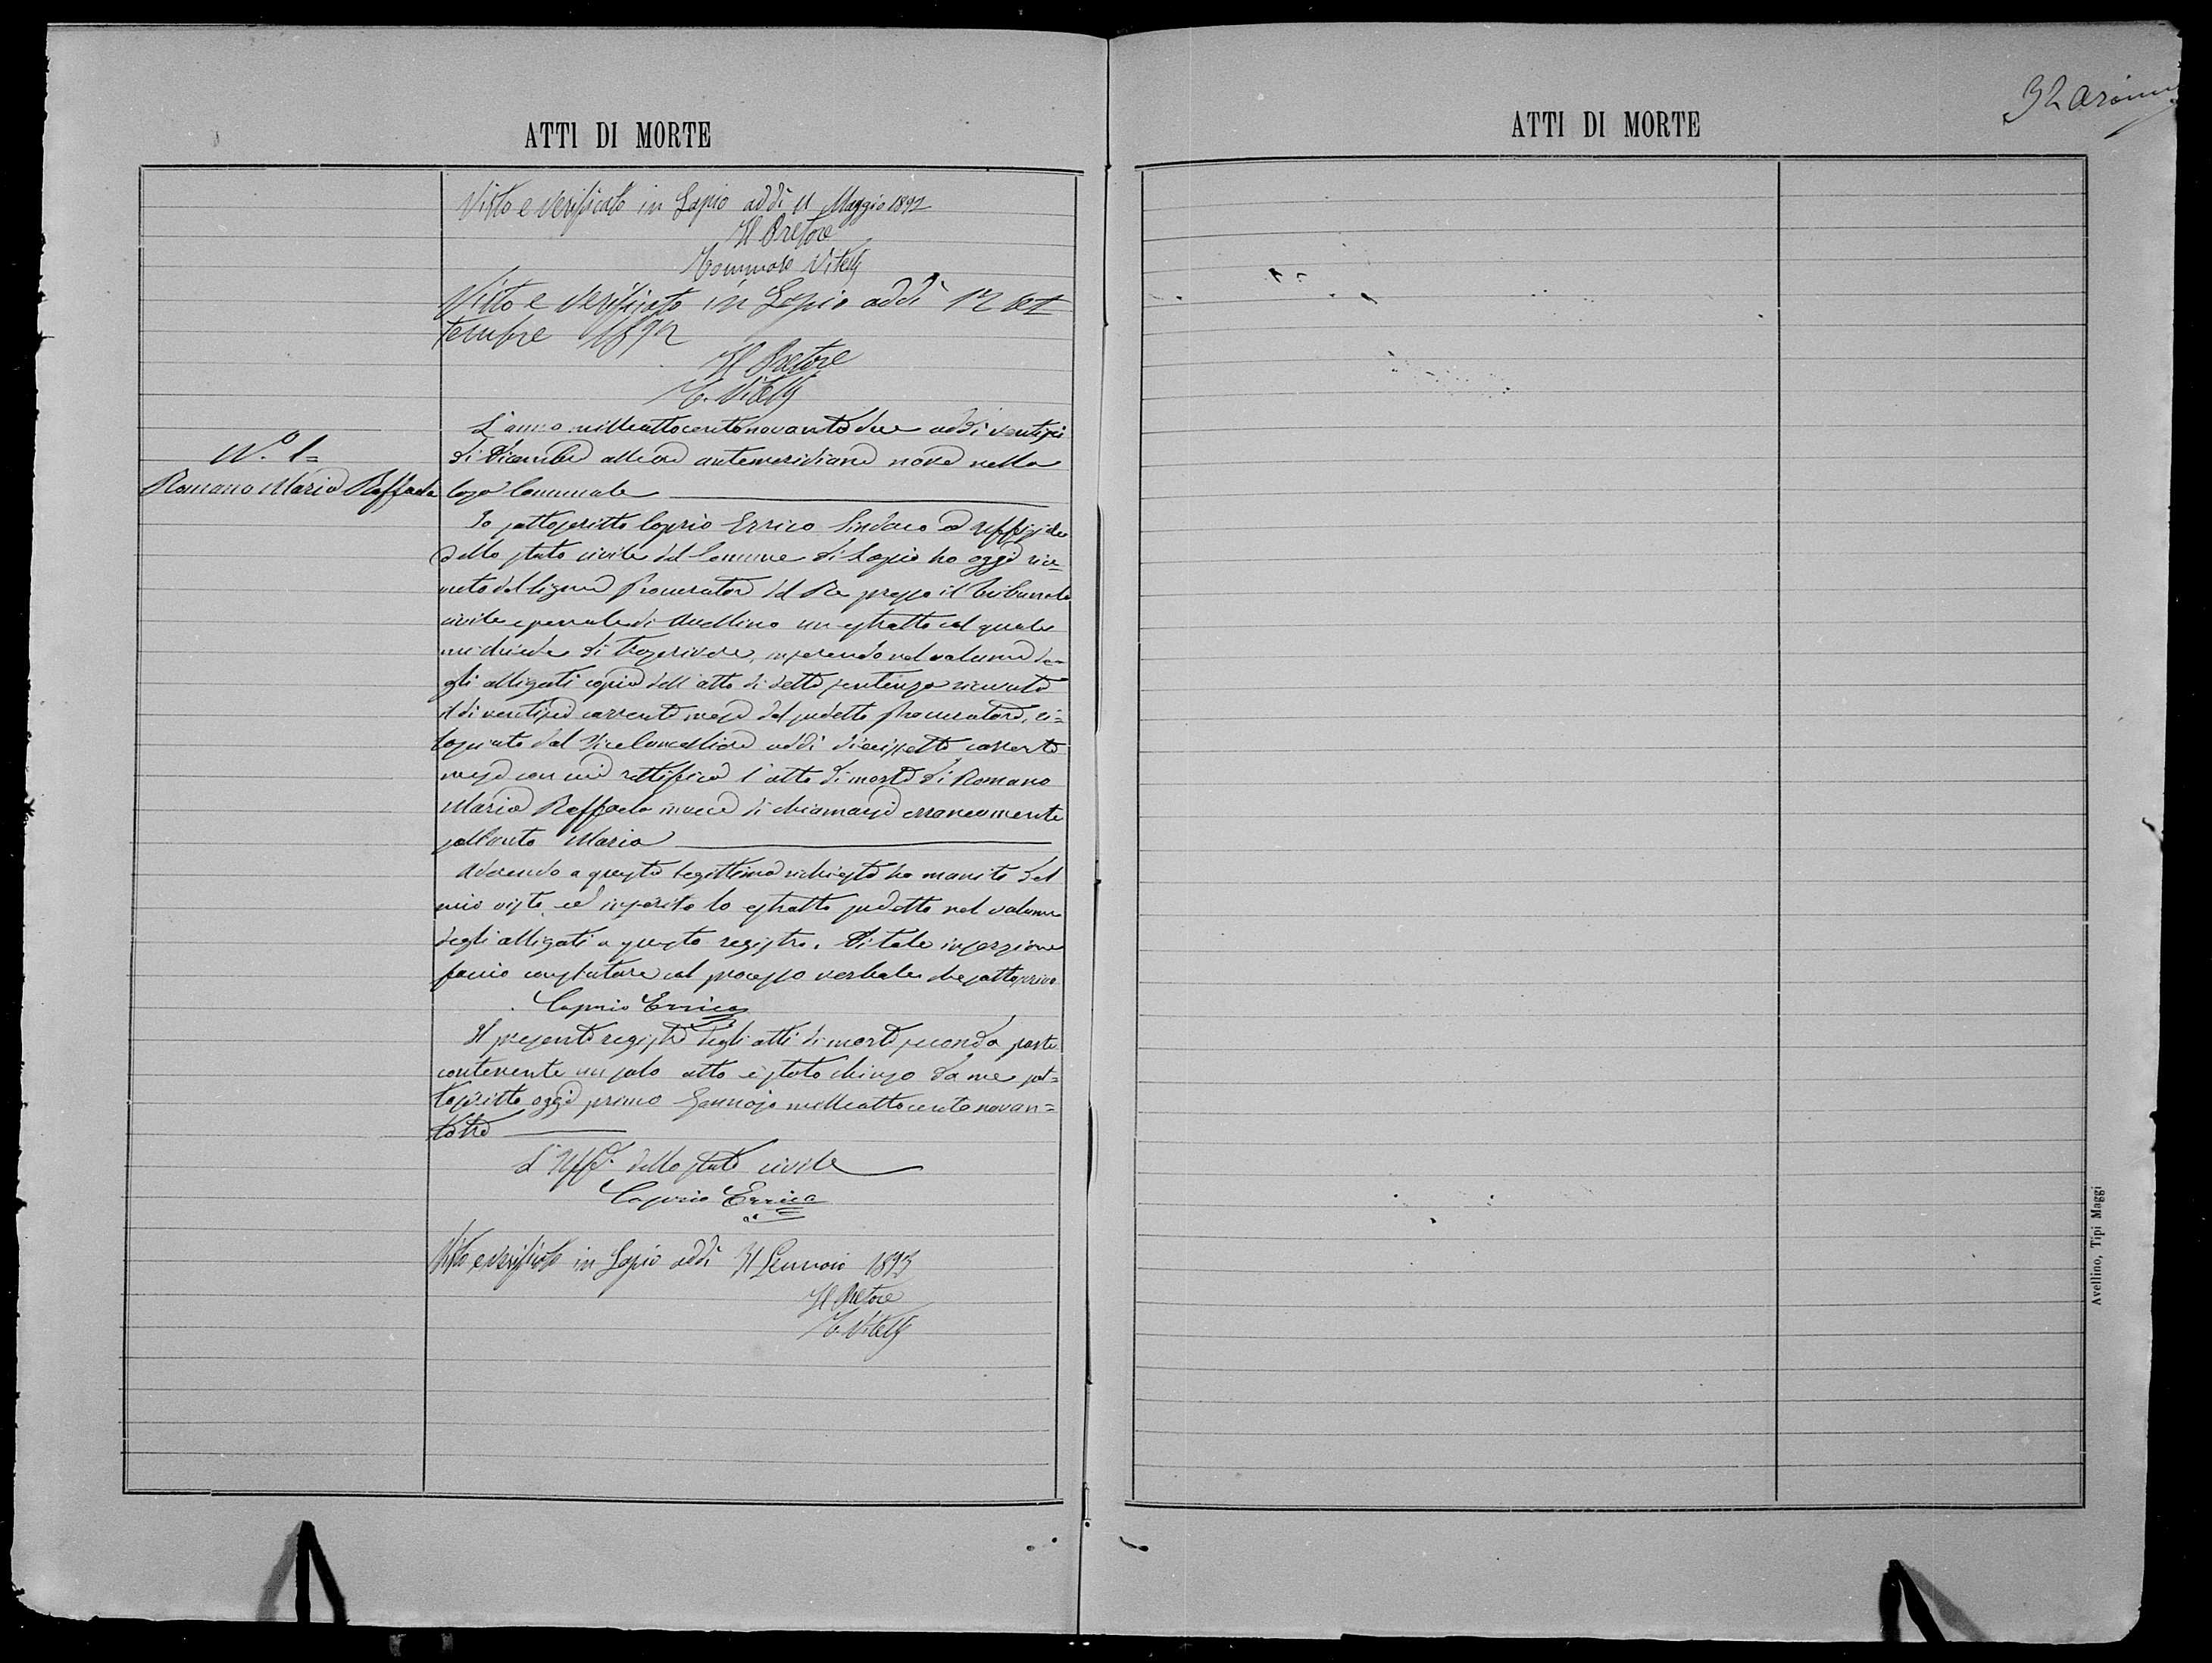 ATTI DI MORTE
Visto e verificato in Lapio addì 11 Maggio 1892
Il Pretore
Tommaso Vitelli
Visto e verificato in Lapio addì 12 Set
tembre 1892
Il Pretore
T. Vitelli
N.º 1=
Romano Maria Raffaela
L'anno milleottocentonovantadue addì ventisei
di Dicembre alle ore antemeridiane nove nella
Casa Comunale
Io sottoscritto Caprio Errico Sindaco ed uffiziale
dello stato civile del Comune di Lapio ho oggi rice=
vuto dal Signor Procuratore del Re presso il Tribunale
civile e penale di Avellino un estratto col quale
mi chiede di trascrivere, inserendo nel volume de=
gli alligati copia dell'atto di detta sentenza ricevuta
il dì ventisei corrente mese dal sudetto Procuratore, ri=
lasciata dal Vice Cancelliere addì diciassette corrente
mese con cui rettifica l'atto di morte di Romano
Maria Raffaela invece di chiamarsi erroneamente
soltanto Maria
Aderendo a questa legittima richiesta ho munito del
mio visto ed inserito lo estratto sudetto nel volume
degli alligati a questo registro. Di tale inserzione
faccio constatare col processo verbale che sottoscrivo
Caprio Errico
Il presente registro degli atti di morte seconda parte
contenente un solo atto è stato chiuso da me sot=
toscritto oggi primo Gennajo milleottocentonovan=
tatre
L'Uff.e dello stato civile
Caprio Errico
Visto e verificato in Lapio addì 31 Gennaio 1893
Il Pretore
T. Vitelli
ATTI DI MORTE
32
Avellino, Tipi Maggi